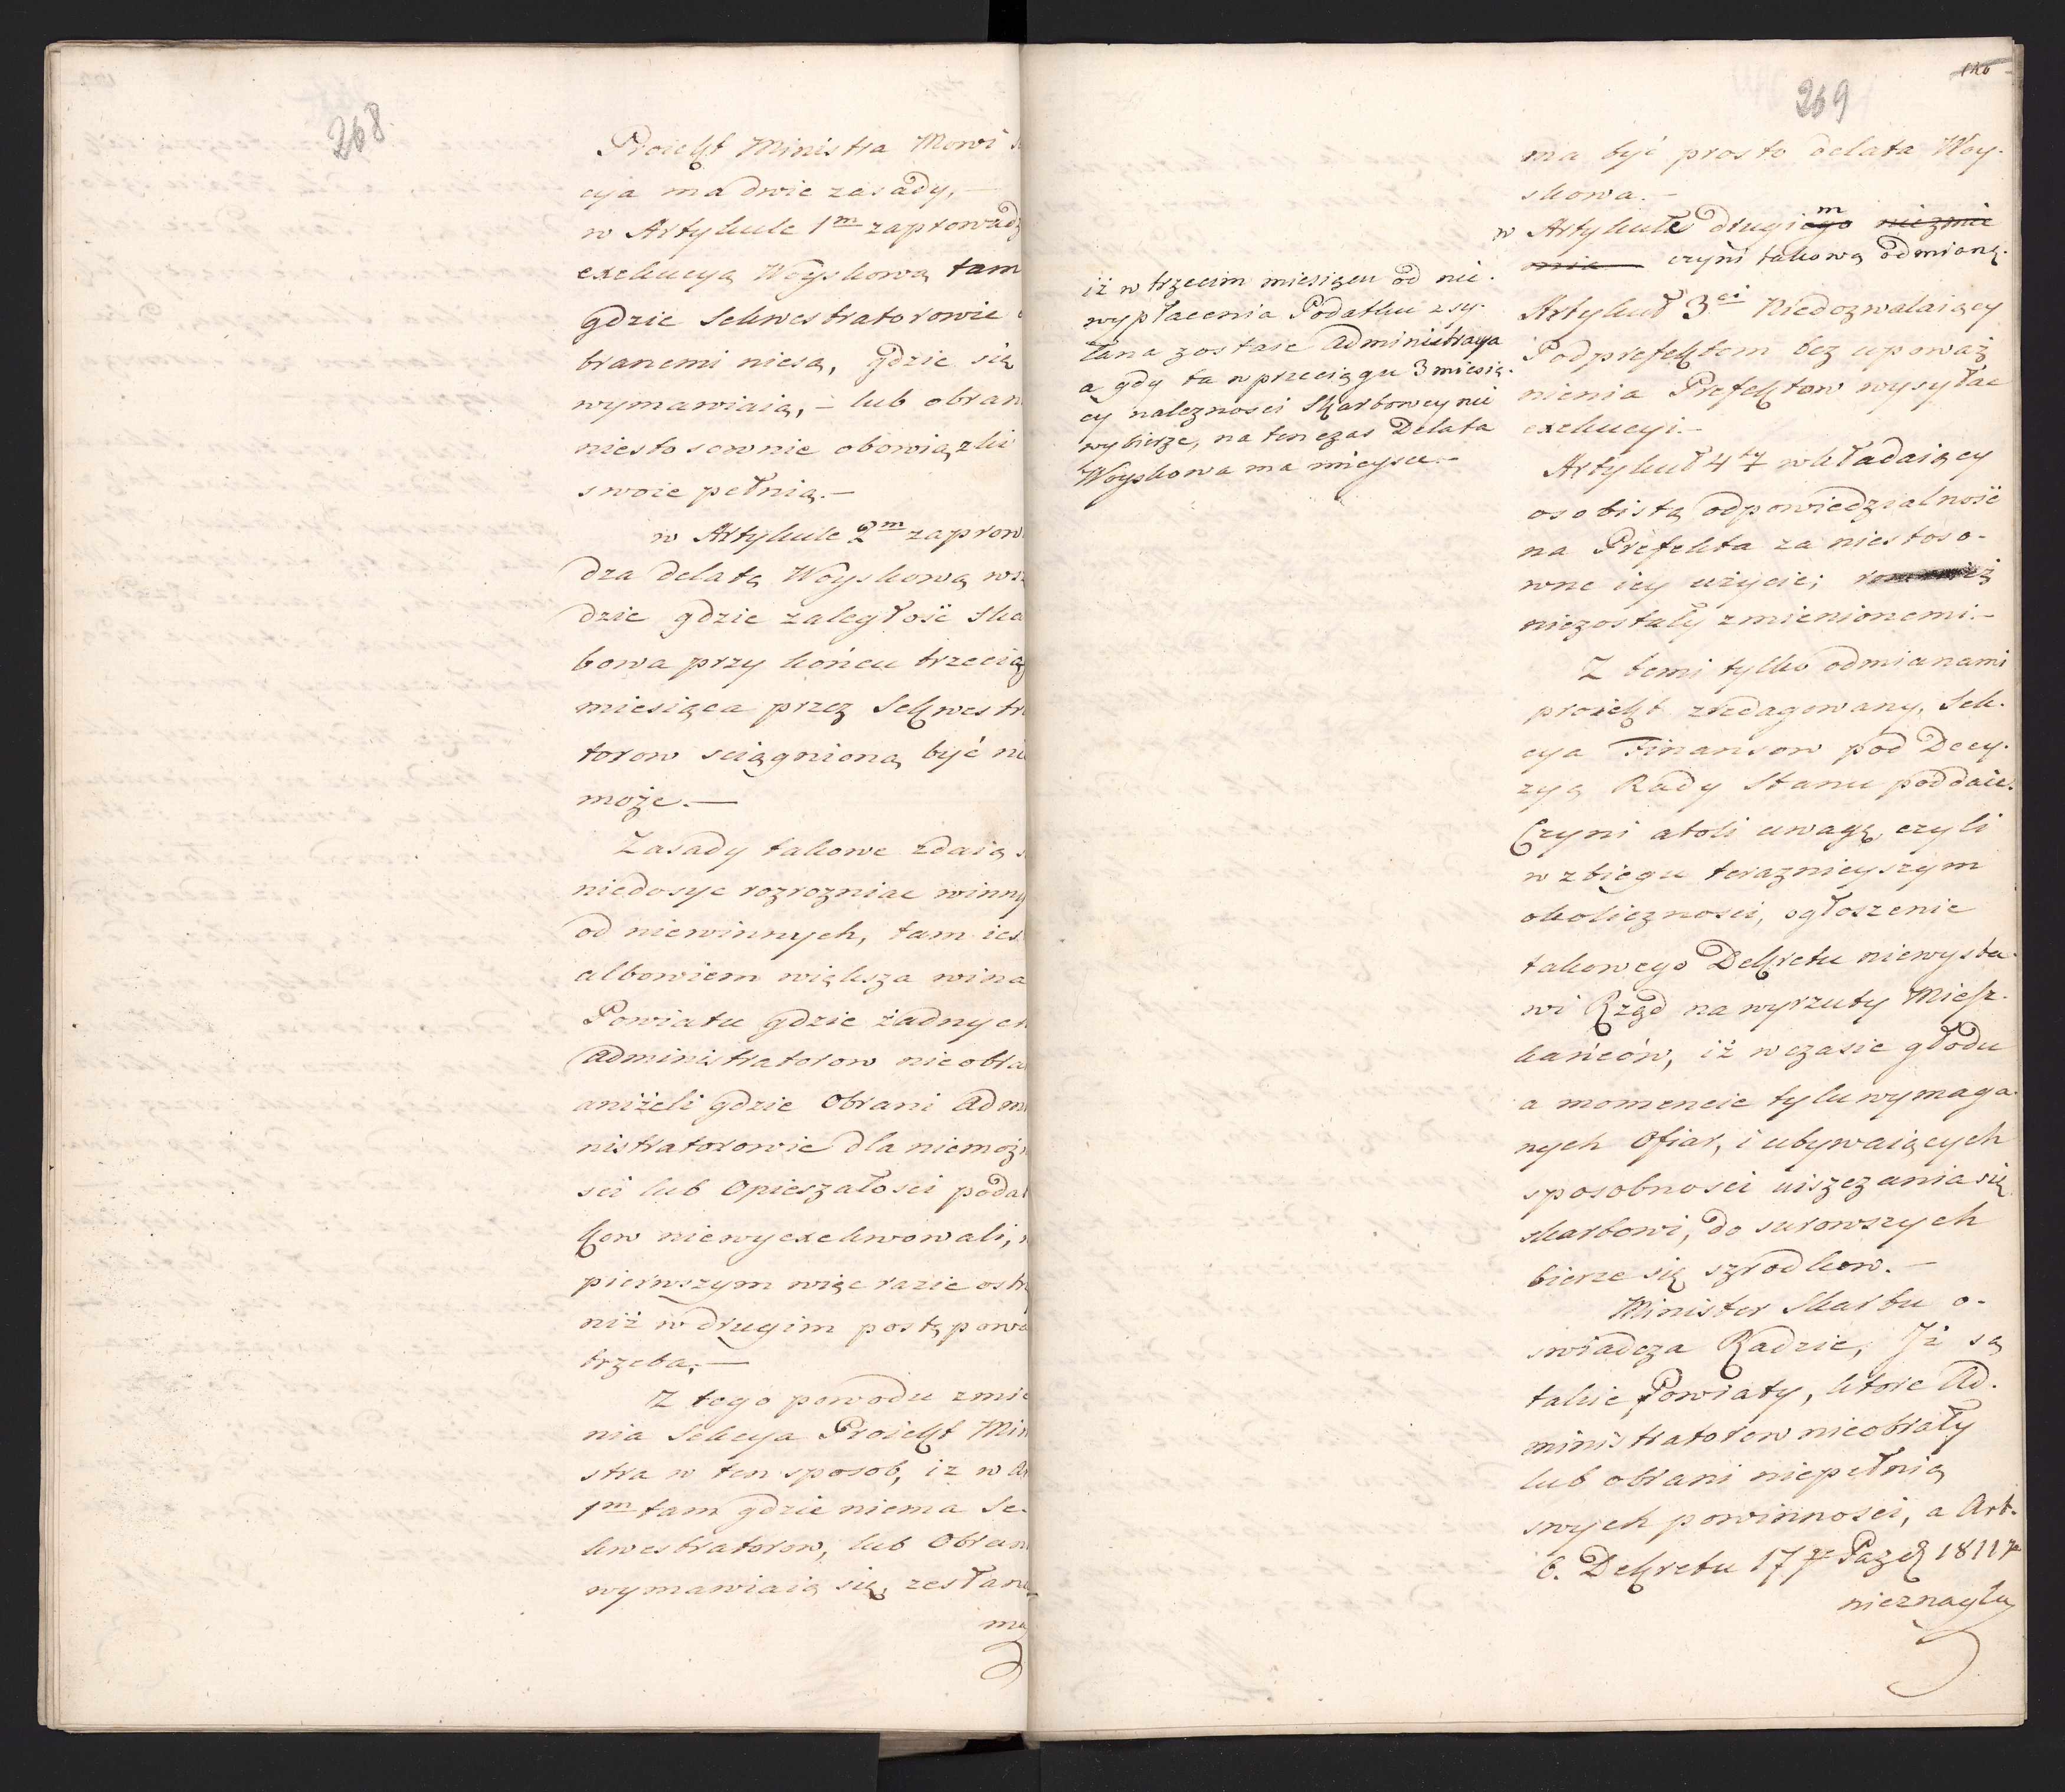 268.
Proiekt Ministra Mowi
cya ma dwie zasady, —
w Artykule 1m zaprowadz
exekucyą Woyskową tam
gdzie Sekwestratorowie
branemi niesą, gdzie się
wymawiaią, – lub obran
niestosownie obowiązki
swoie pełnią. –
w Artykule 2m zaprow
dza delatę Woyskową ws
dzie gdzie zaległość Ska
bowa przy końcu trzecią
miesiąca przez Sekwestr
torow sciągnioną być ni
może. —
Zasady takowe zdaią s
niedosyc rozrozniac winny
od niewinnych, tam ies
albowiem większa wina
Powiatu gdzie żadnych
Administratorow nieobra
aniżeli gdzie Obrani Adm
nistratorowie dla niemoż
sci lub Opieszałosci poda
kow niewyexekwowali,
pierwszym więc razie ostr
niż w drugim postępowa
trzeba, —
Z tego powodu zmie
nia Sekcya Proiekt Min
stra w ten sposob, iz w A
1m tam gdzie niema Se-
kwestratorow, lub Obran
wymawiaią się, zesłan
ma
269
ma być prosto delata Woy-
skowa. –
w Artykule drugiego m niezmie
nia czyni takową odmianę.
iż w trzecim miesiącu od nie-
wypłacenia Podatku zsy-
łana zostaie Administracya
a gdy ta w przeciągu 3 miesię-
cy nalezności Skarbowey nie
wybierze, na ten czas Delata
Woyskowa ma mieysce. –
Artykuł 3ci Niedozwalaiący
Podprefektom bez upoważ
nienia Prefektow wysyłac
exekucyi. –
Artykuł 4ty wkładaiący
osobistą odpowiedzialność
na Prefekta za niestoso-
wne iey użycie;
niezostały zmienionemi. –
Z temi tylko odmianami
proiekt zredagowany, Sek-
cya Finansow pod Decy-
zyą Rady Stanu poddaie.
Czyni atoli uwagę, czyli
w zbiegu teraznieyszym
okoliczności, ogłoszenie
takowego Dekretu niewysta-
wi Rząd na wyrzuty Miesz-
kańców, iż w czasie głodu
a momencie tylu wymaga-
nych Ofiar, i ubywaiących
sposobnosci uiszczania się
skarbowi, do surowszych
bierze się szrodkow. –
Minister Skarbu o-
swiadcza Radzie, Iż są
takie Powiaty, ktore Ad-
ministratorow nieobrały
lub obrani niepełnią
swych powinności, a Art.
6. Dekretu 17 Paźdź 1811 r
nieznagla